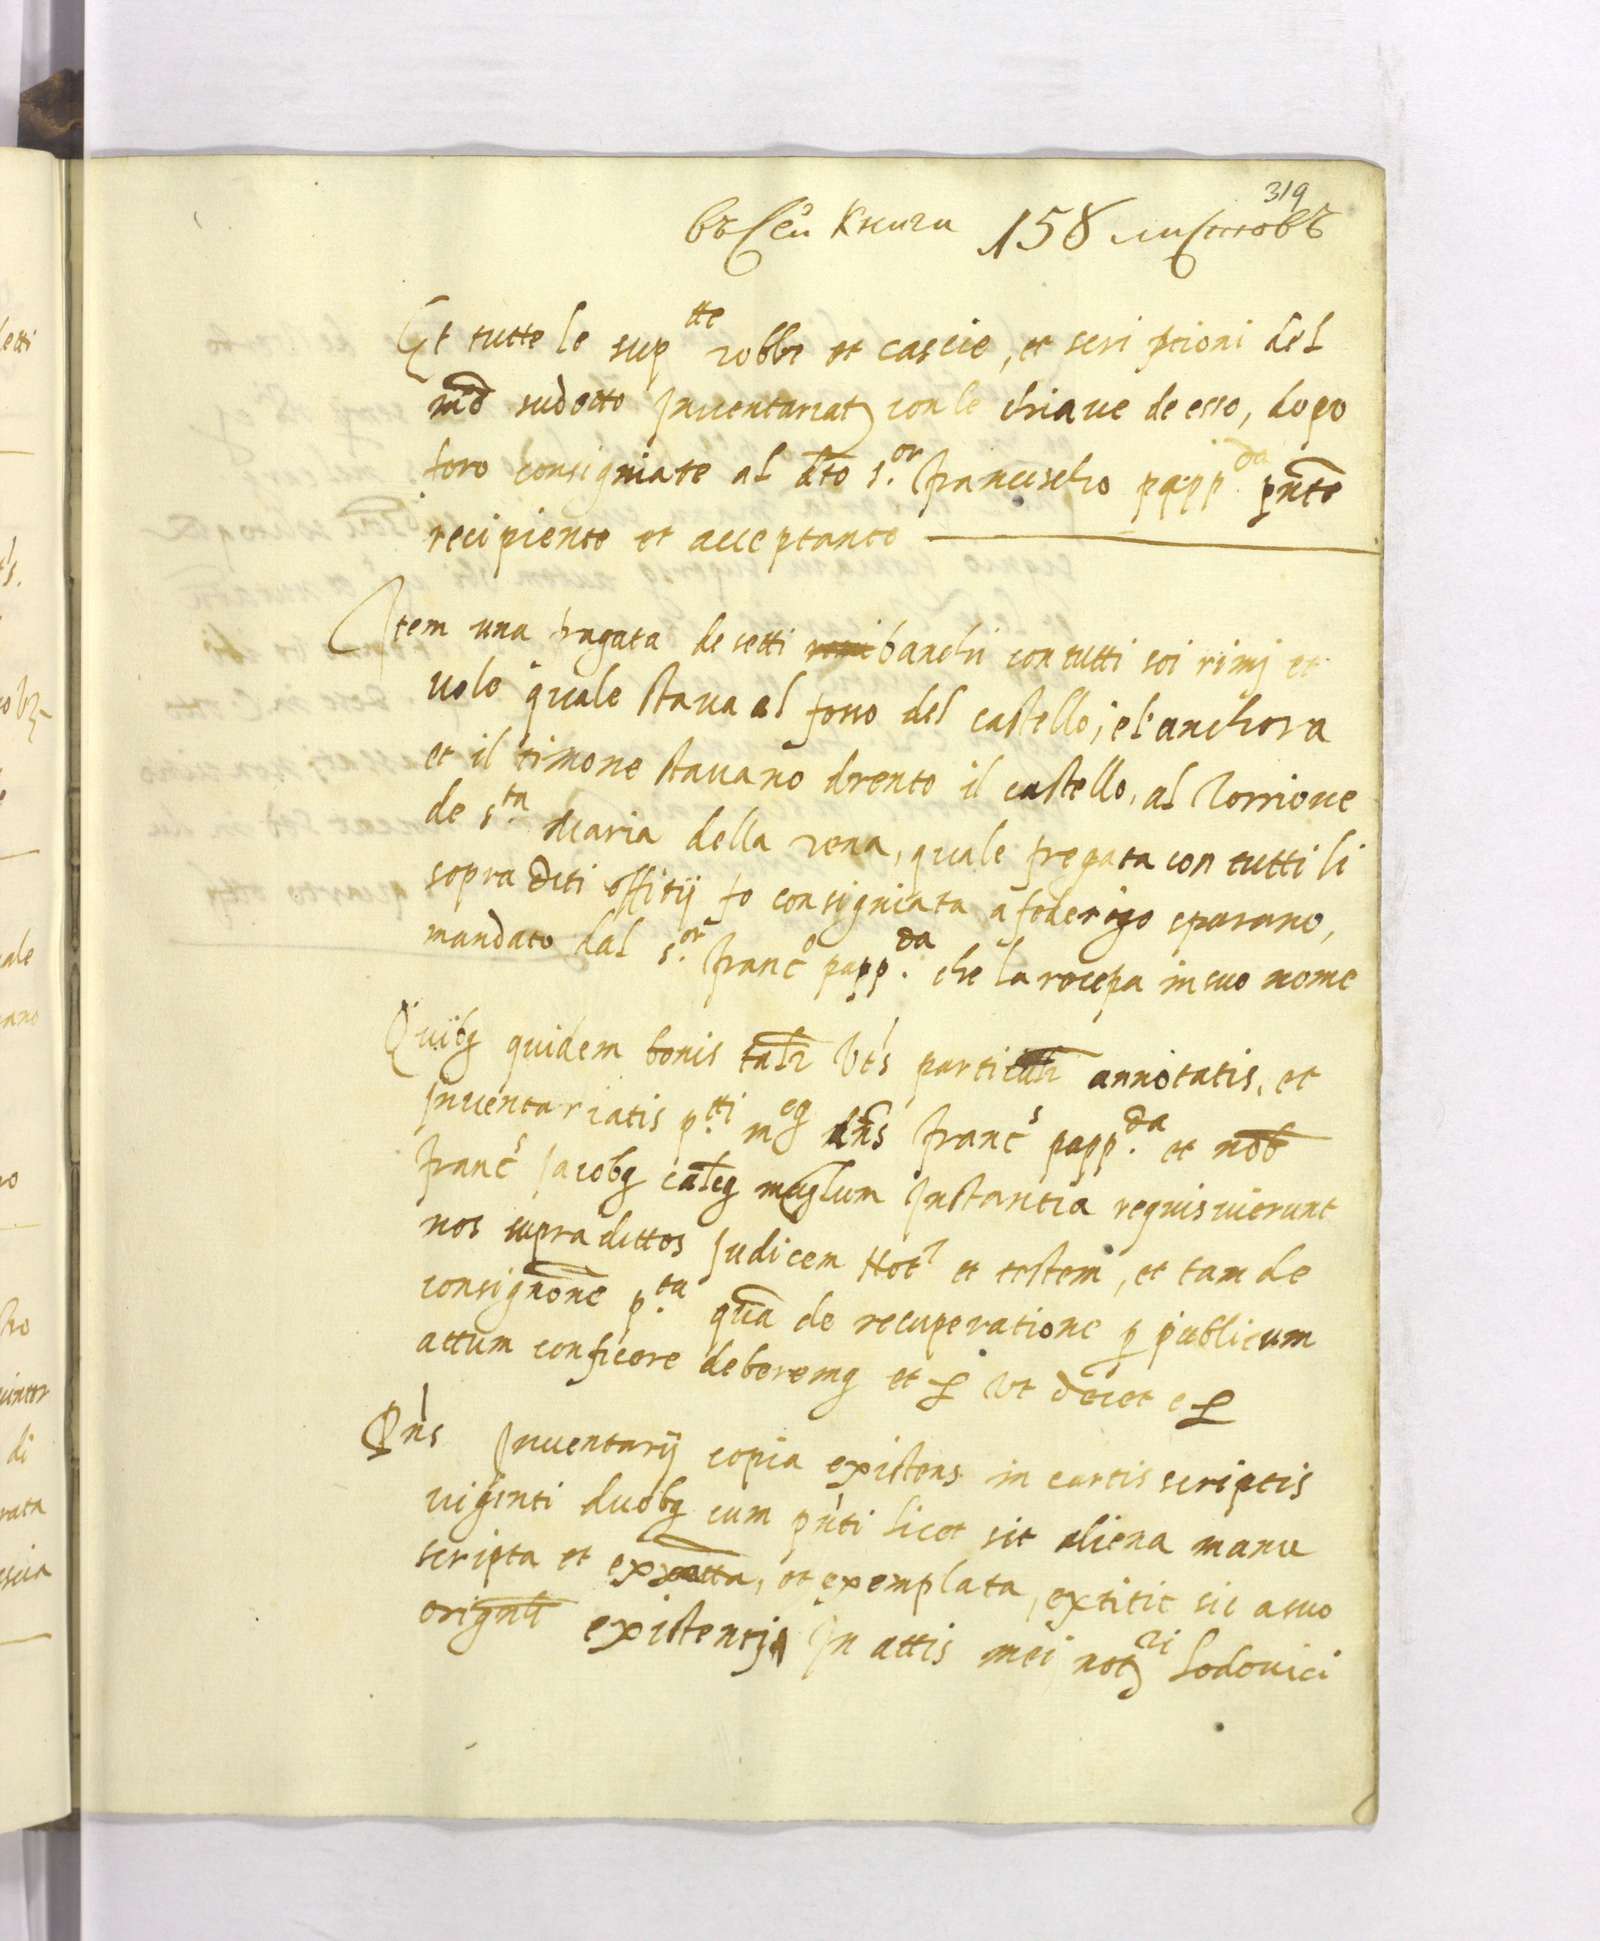 319
въ сей книги 158 листовъ
Et tutte le sup.tte robbe et cascie, et scriptioni del
mõ sudetto Inventariat, con le chiave de esso, dopo
foro consigniate al d̃to s.or Francischo papp.da p̃nte
recipiente et acceptante
Item una fragata de setti banchi con tutti soi rimj et
vele quale stava al fosso del castello, et l'anchora
et il timone stavano drento il castello, al Torrione
de s.ta Maria della rena, quale fregata con tutti li
sopra ditti offitij fo consigniata a foderigo sparano,
mandato dal s.or Franc.o papp.da che la recepa in suo nome
Quibq quidem bonis talr̃ Vt s particulr̃ annotatis, et
Inventariatis p.tti mcq dñs Franc.s papp.da et nob
Franc.s Jacobq calcq magnum Instantia requisivierunt
nos supra dittos Judicem Not? et testem, et tam de
consignõne p.ta quã de recuperatione p publicum
attum conficere deberemq et ꝭ Vt decet eꝭ
P̃ns Inventarij copia existens in cartis scriptis
viginti duobq cum pñti licet sit aliena manu
scripta et exratta, et exemplata, extitit sic a suo
originali existentj In attis mei not.ri Lodovici